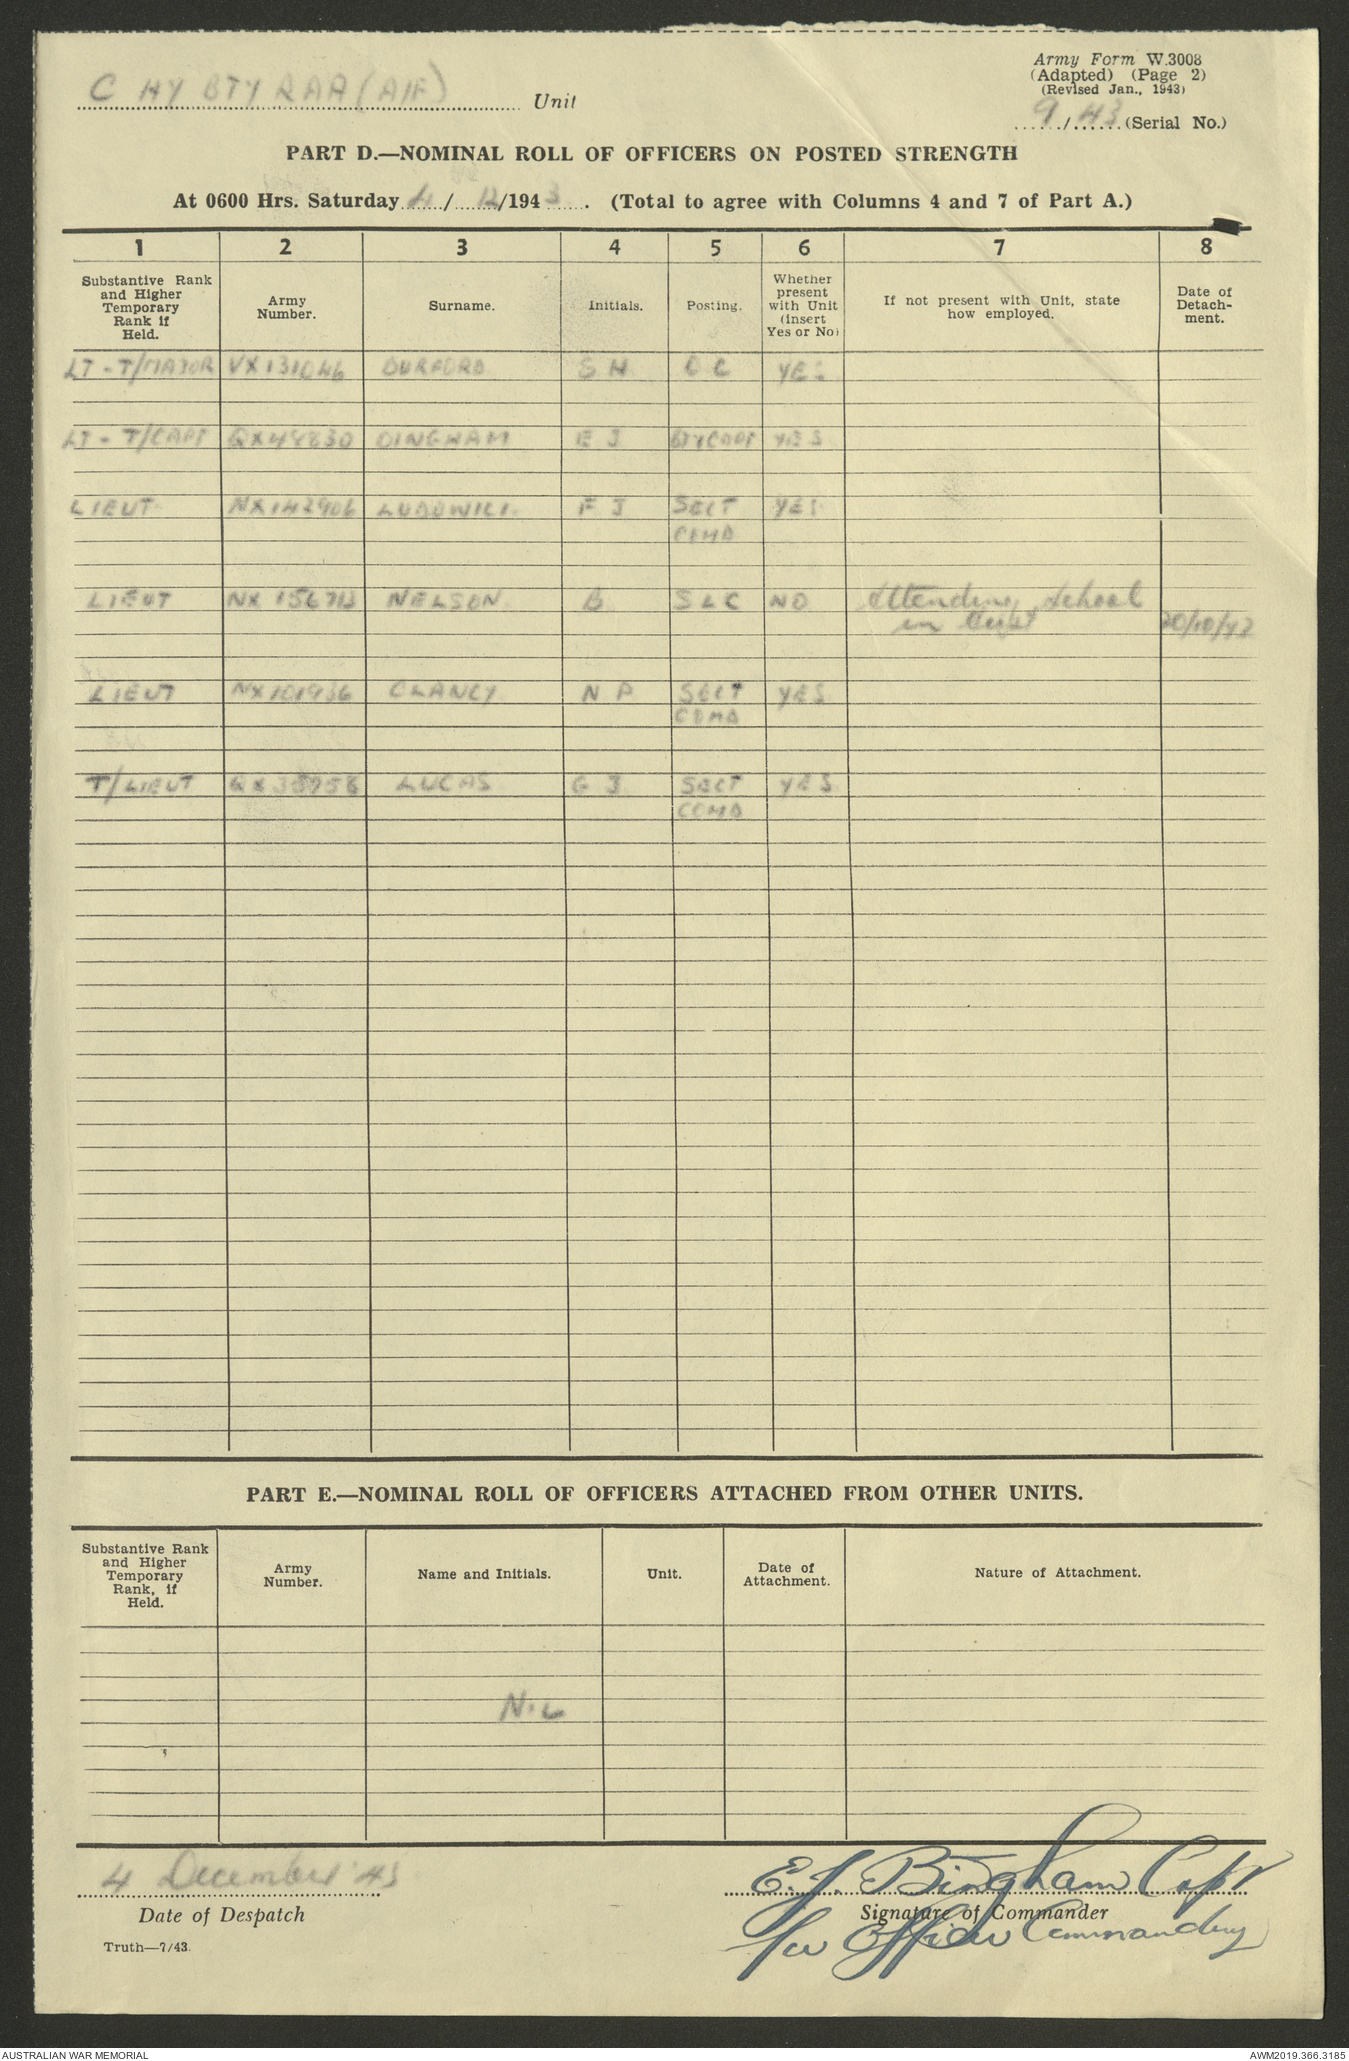 C HY BTY RAA (AIF) Unit
Army Form W.3008
(Adapted) (Page 2)
(Revised Jan., 1943)
9/43 (Serial No.)
PART D.—NOMINAL ROLL OF OFFICERS ON POSTED STRENGTH
At 0600 Hrs. Saturday 4/12/1943. (Total to agree with Columns 4 and 7 of Part A.)
1 2 3 4 5 6 7 8
Substantive Rank and Higher Temporary Rank if Held. Army Number. Surname. Initials. Posting. Whether present with Unit (insert Yes or No) If not present with Unit, state how employed. Date of Detach-ment.
LT - T/MAJOR VX131046 DURFORD S H O C YES
LT - T/CAPT BINGHAM E J BTY CAPT YES
LIEUT NX142906 LUDOWICI F J SECT YES
COMD
LIEUT NX NELSON B S L C NO Attending School
in 20/10/43
LIEUT NX101936 CLANCY N P SECT YES
COMD
T/LIEUT LUCAS G J SECT YES
COMD
PART E.—NOMINAL ROLL OF OFFICERS ATTACHED FROM OTHER UNITS.
Substantive Rank and Higher Temporary Rank, if Held. Army Number. Name and Initials. Unit. Date of Attachment. Nature of Attachment.
NIL
4 December '43 E.J. Bingham Capt
Date of Despatch Signature of Commander
for Officer Commanding
Truth—7/43.
AUSTRALIAN WAR MEMORIAL AWM2019.366.3185